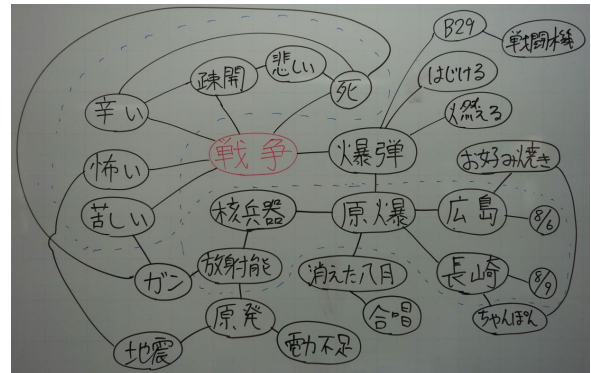 B29
戦闘機
はじける
燃える
悲しい
疎開
死
辛い
戦争
爆弾
お好み焼き
怖い
苦しい
核兵器
原爆
広島
8/6
ガン
放射能
消えた八月
長崎
8/9
原発
合唱
ちゃんぽん
地震
電力不足